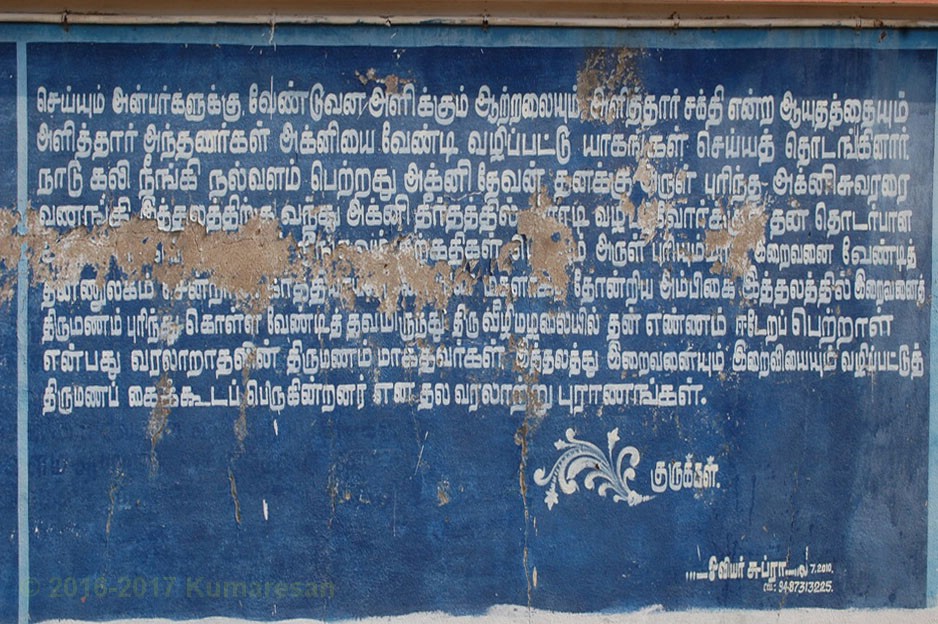 செய்யும் அன்பர்களுக்கு, வேண்டுவன அளிக்கும் ஆற்றலையும் அளித்தார் சக்தி என்ற ஆயுதத்தையும்
அளித்தார் அந்தணர்கள் அக்னியை வேண்டி வழிப்பட்டு யாகங்கள் செய்யத் தொடங்கினார்.
நாடு கலி நீங்கி நல்வளம் பெற்றது அக்னி தேவன் தனக்கு அருள் புரிந்த அக்னிசுவரரை
வணங்கி இத்தலத்திற்கு வந்து அக்னி தீர்த்தத்தில் தன் தொடர்பான
அருள் புரியமாறு இறைவனை வேண்டித்
தோன்றிய அம்பிகை இத்தலத்தில் இறைவனைத்
திருமணம் புரிந்து கொள்ள வேண்டித் தவமிருந்து திருவீழிமிழலையில் தன் எண்ணம் ஈடேறப் பெற்றாள்
என்பது வரலாறாதலின் திருமணம் மாகதவர்கள் இத்தலத்து இறைவனையும் இறைவியையும் வழிப்பட்டுத்
திருமணப் கைக்கூடப் பெருகின்றனர் என தல வரலாற்று புராணாங்கள்.
குருக்கள்.
7.2010.
94-87313225.
© 2016-2017 Kumaresan